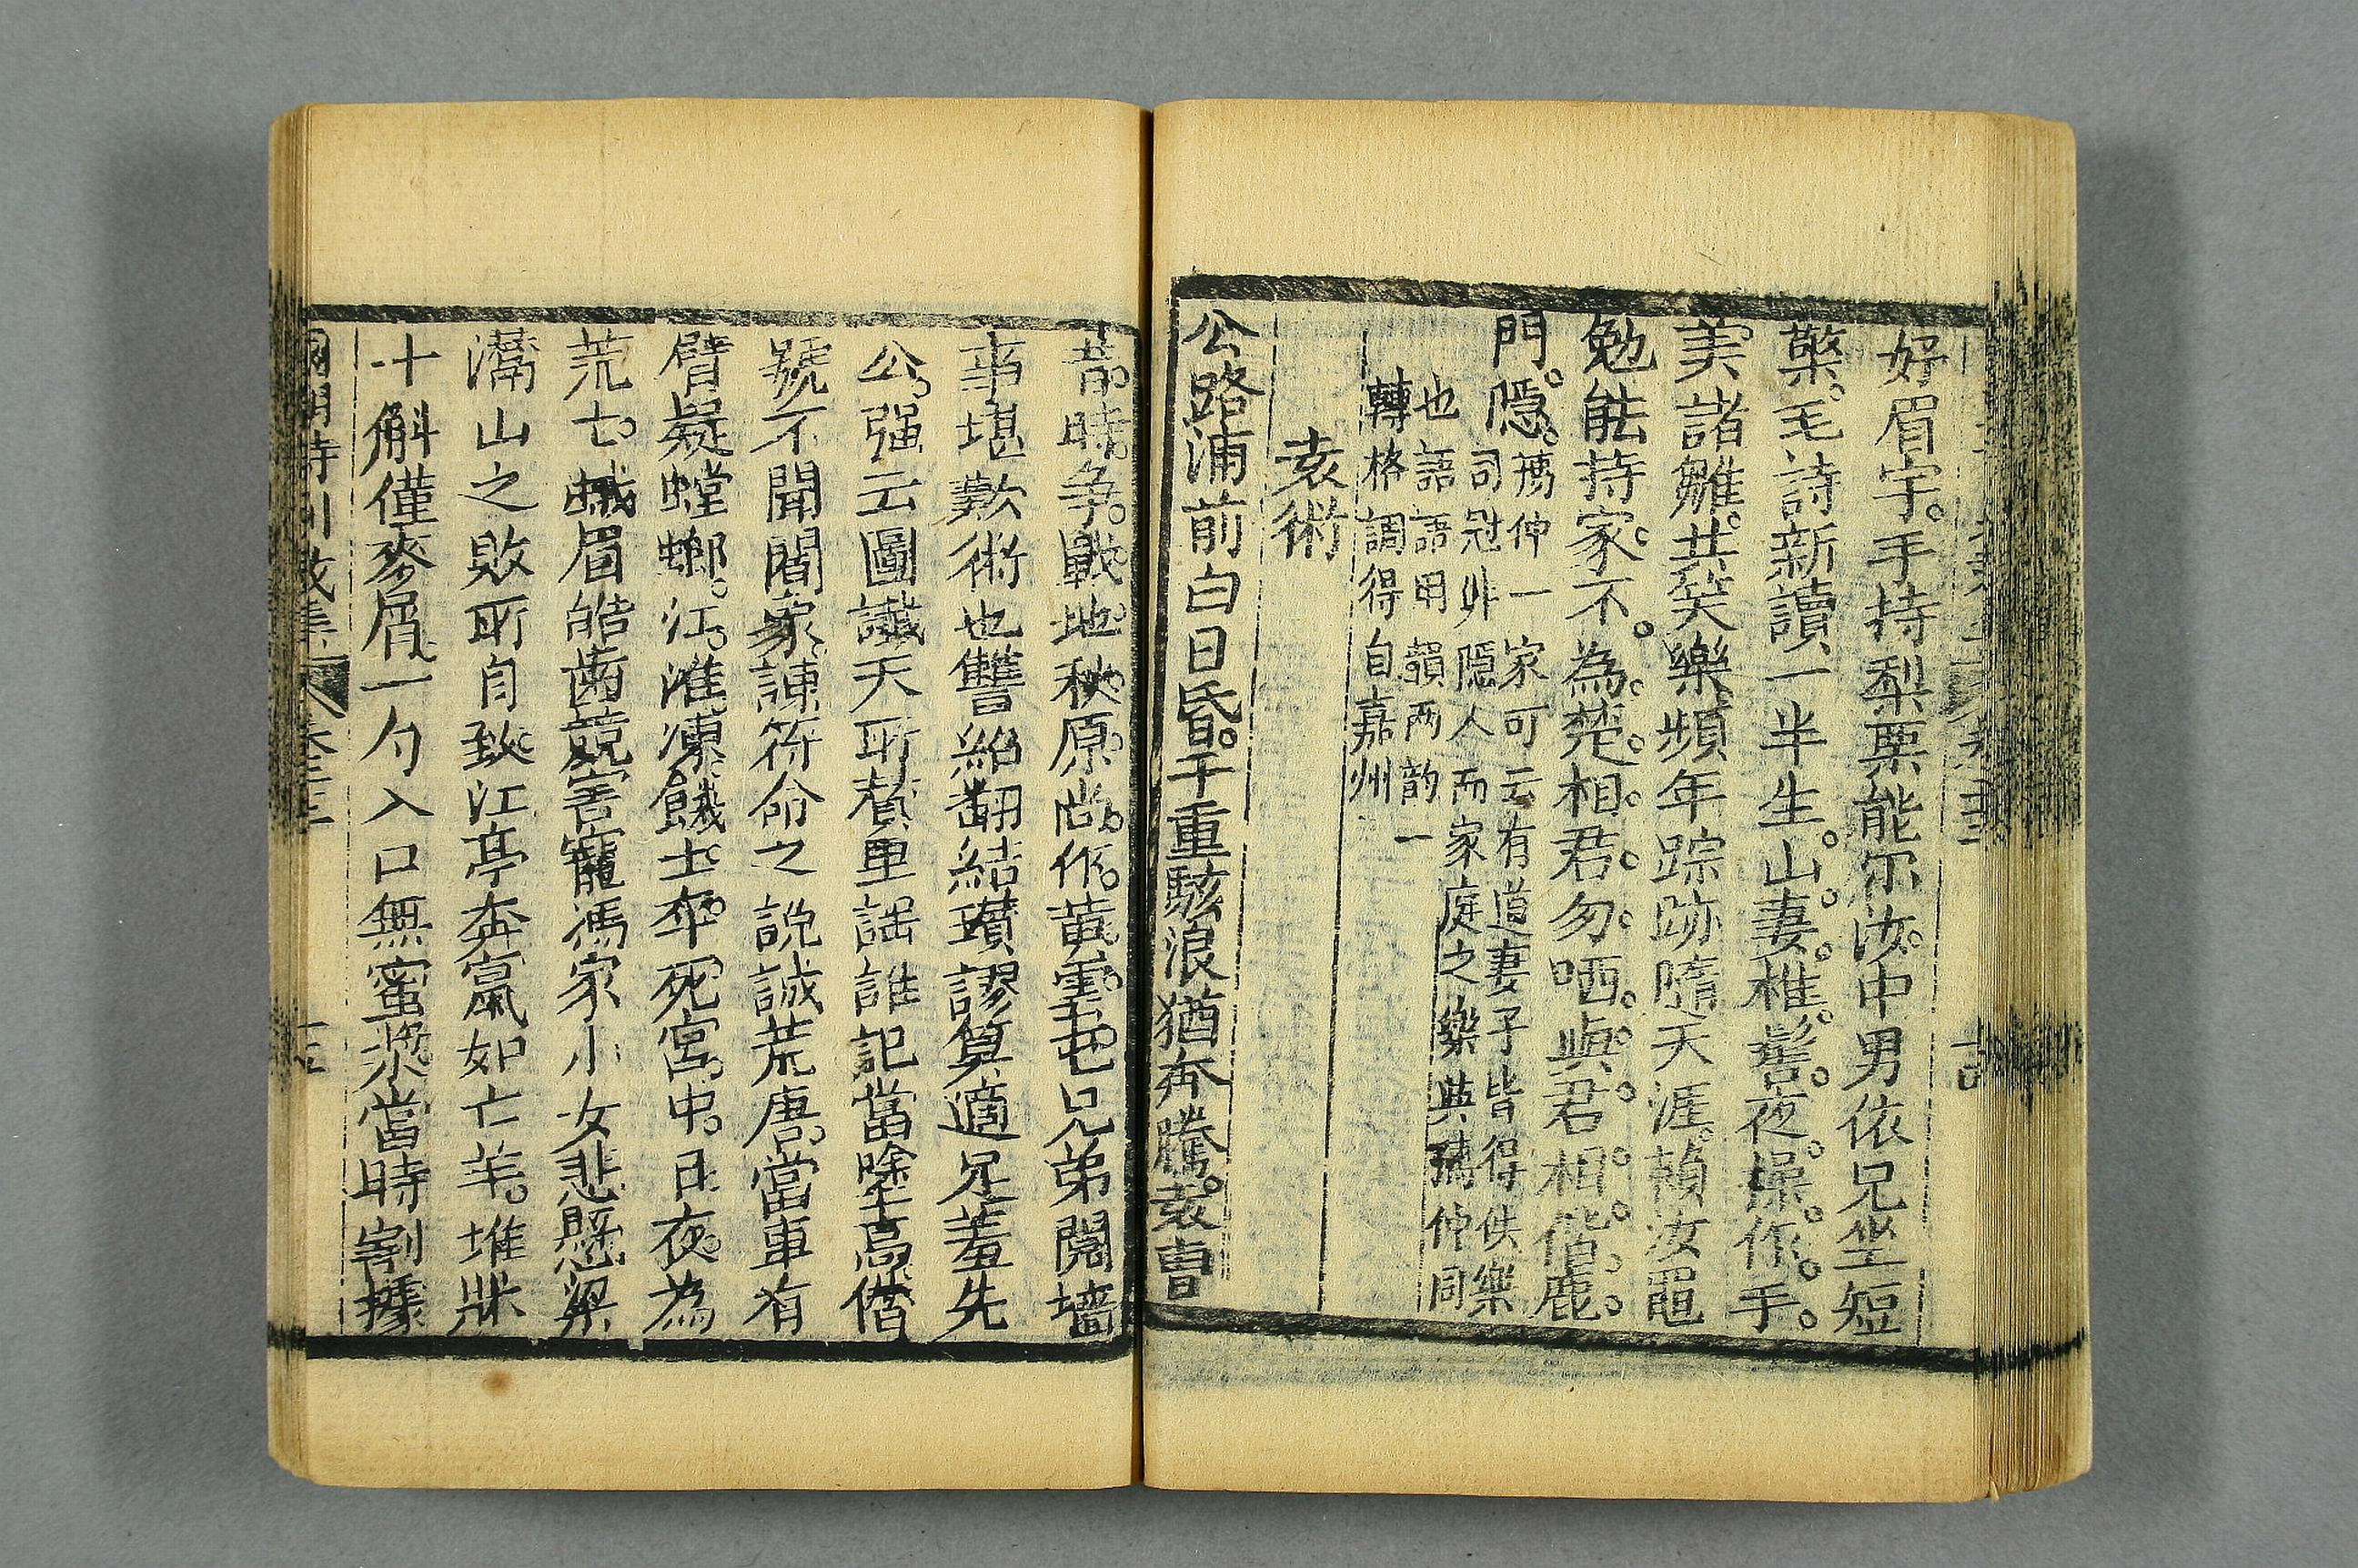 好眉宇。手持梨栗能尔汝。中男依兄坐短
檠。毛詩新讀一半生。山妻椎髻夜操作。手
美諸雛。共笑樂。頻年踪跡隨天涯。頼汝黽
勉能持家。不為楚相君勿哂。與君相偕鹿
門隱。
孺仲一家可云有道妻子皆得佚樂
司冠非隱人而家庭之樂與孺仲同
也語語用韻两韵一
轉格調得自嘉州
袁術
公路浦前白日昏。千重駭浪猶奔騰。袁曹
昔時争戰地。秋原尚作黄雲屯。兄弟鬩墻
事堪歎。術也讐紹翻結瓚。謬算適足羞先
公。强云圖讖天所賛。里謡誰記當塗高。僭
號不聞閻象諫。符命之說誠荒唐。當車有
臂擬螳螂。江淮凍餓士卒死。宮中日夜為
荒亡。蛾眉皓齒競害寵。馮家小女悲懸梁
灊山之敗所自致。江亭奔竄如亡羊。堆牀
十斛僅麥屑。一勺入口無蜜漿。當時割據